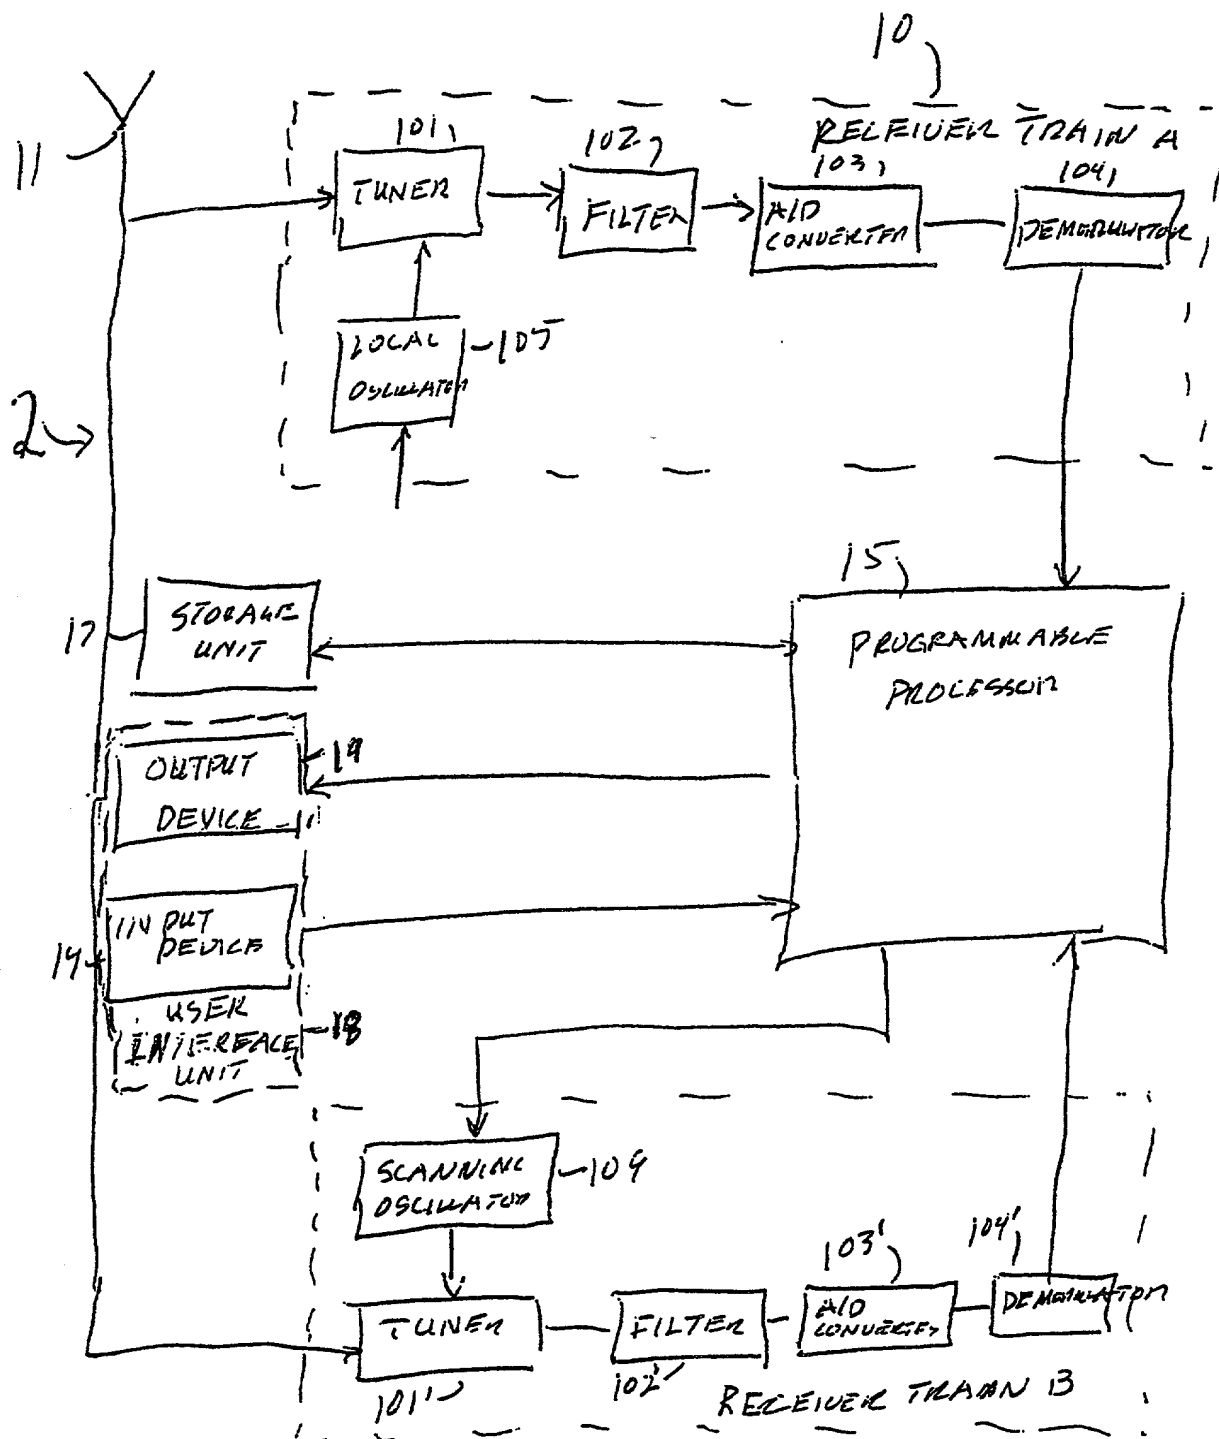 10
RECEIVER TRAIN A
11
101
TUNER
102
FILTER
103
A/D
CONVERTER
104
DEMODULATOR
LOCAL
OSCILLATOR
105
2
15
PROGRAMMABLE
PROCESSOR
17
STORAGE
UNIT
OUTPUT
DEVICE
19
INPUT
DEVICE
14
USER
INTERFACE
UNIT
18
SCANNING
OSCILLATOR
109
TUNER
101'
FILTER
102'
103'
A/D
CONVERTER
104'
DEMODULATOR
RECEIVER TRAIN B